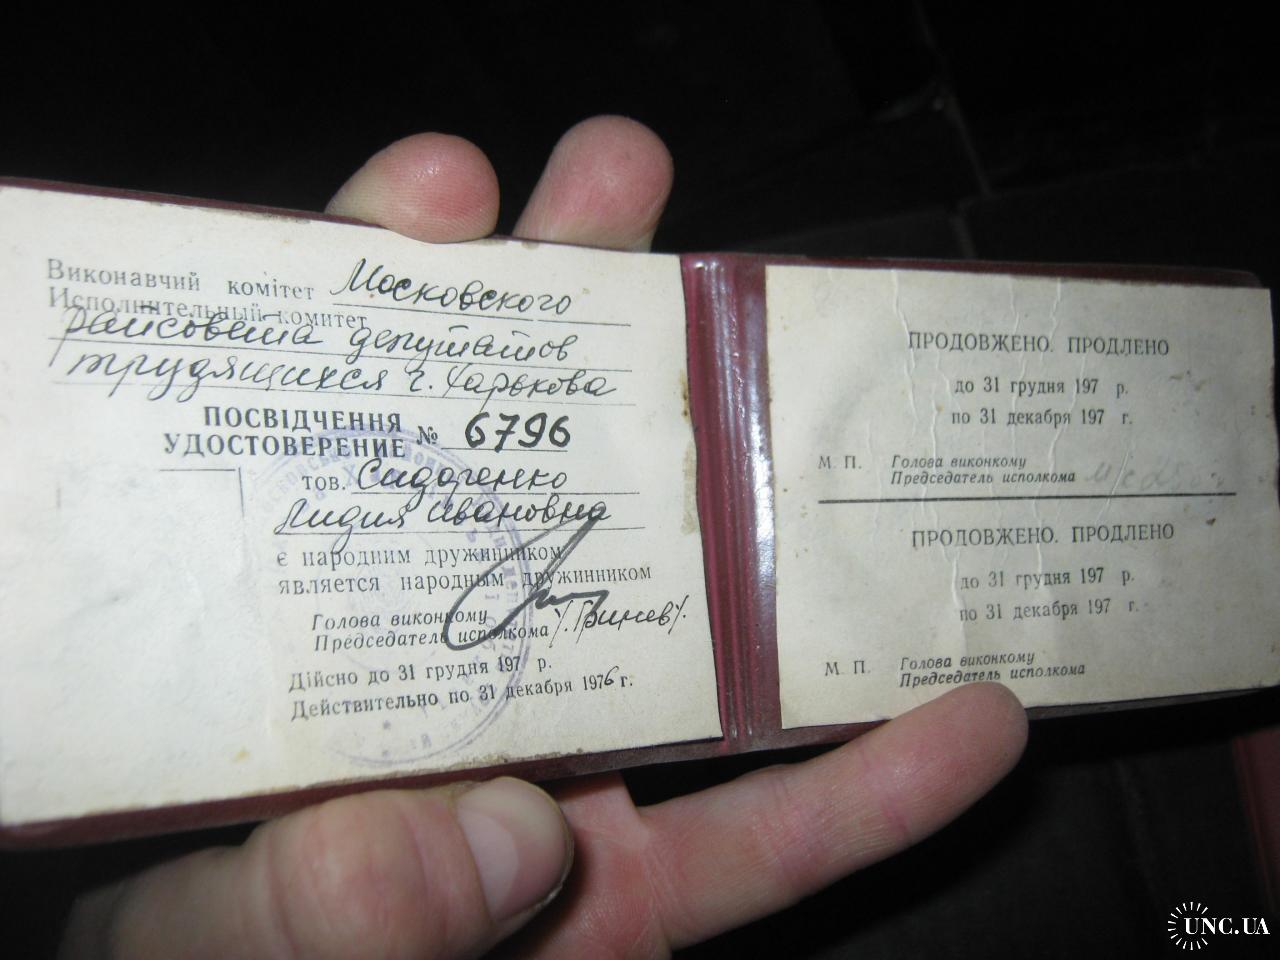 Виконавчий комітет Московского
Исполнительный комитет
райсовета депутатов
трудящихся г. Харькова
ПОСВІДЧЕННЯ
УДОСТОВЕРЕНИЕ № 6796
тов. Сидоренко
Лидия Ивановна
є народним дружинником
является народным дружинником
Голова виконкому
Председатель исполкома
Дійсно до 31 грудня 197 р.
Действительно по 31 декабря 1976 г.
ПРОДОВЖЕНО. ПРОДЛЕНО
до 31 грудня 197 р.
по 31 декабря 197 г.
М. П. Голова виконкому
Председатель исполкома
ПРОДОВЖЕНО. ПРОДЛЕНО
до 31 грудня 197 р.
по 31 декабря 197 г.
М. П. Голова виконкому
Председатель исполкома
UNC.UA